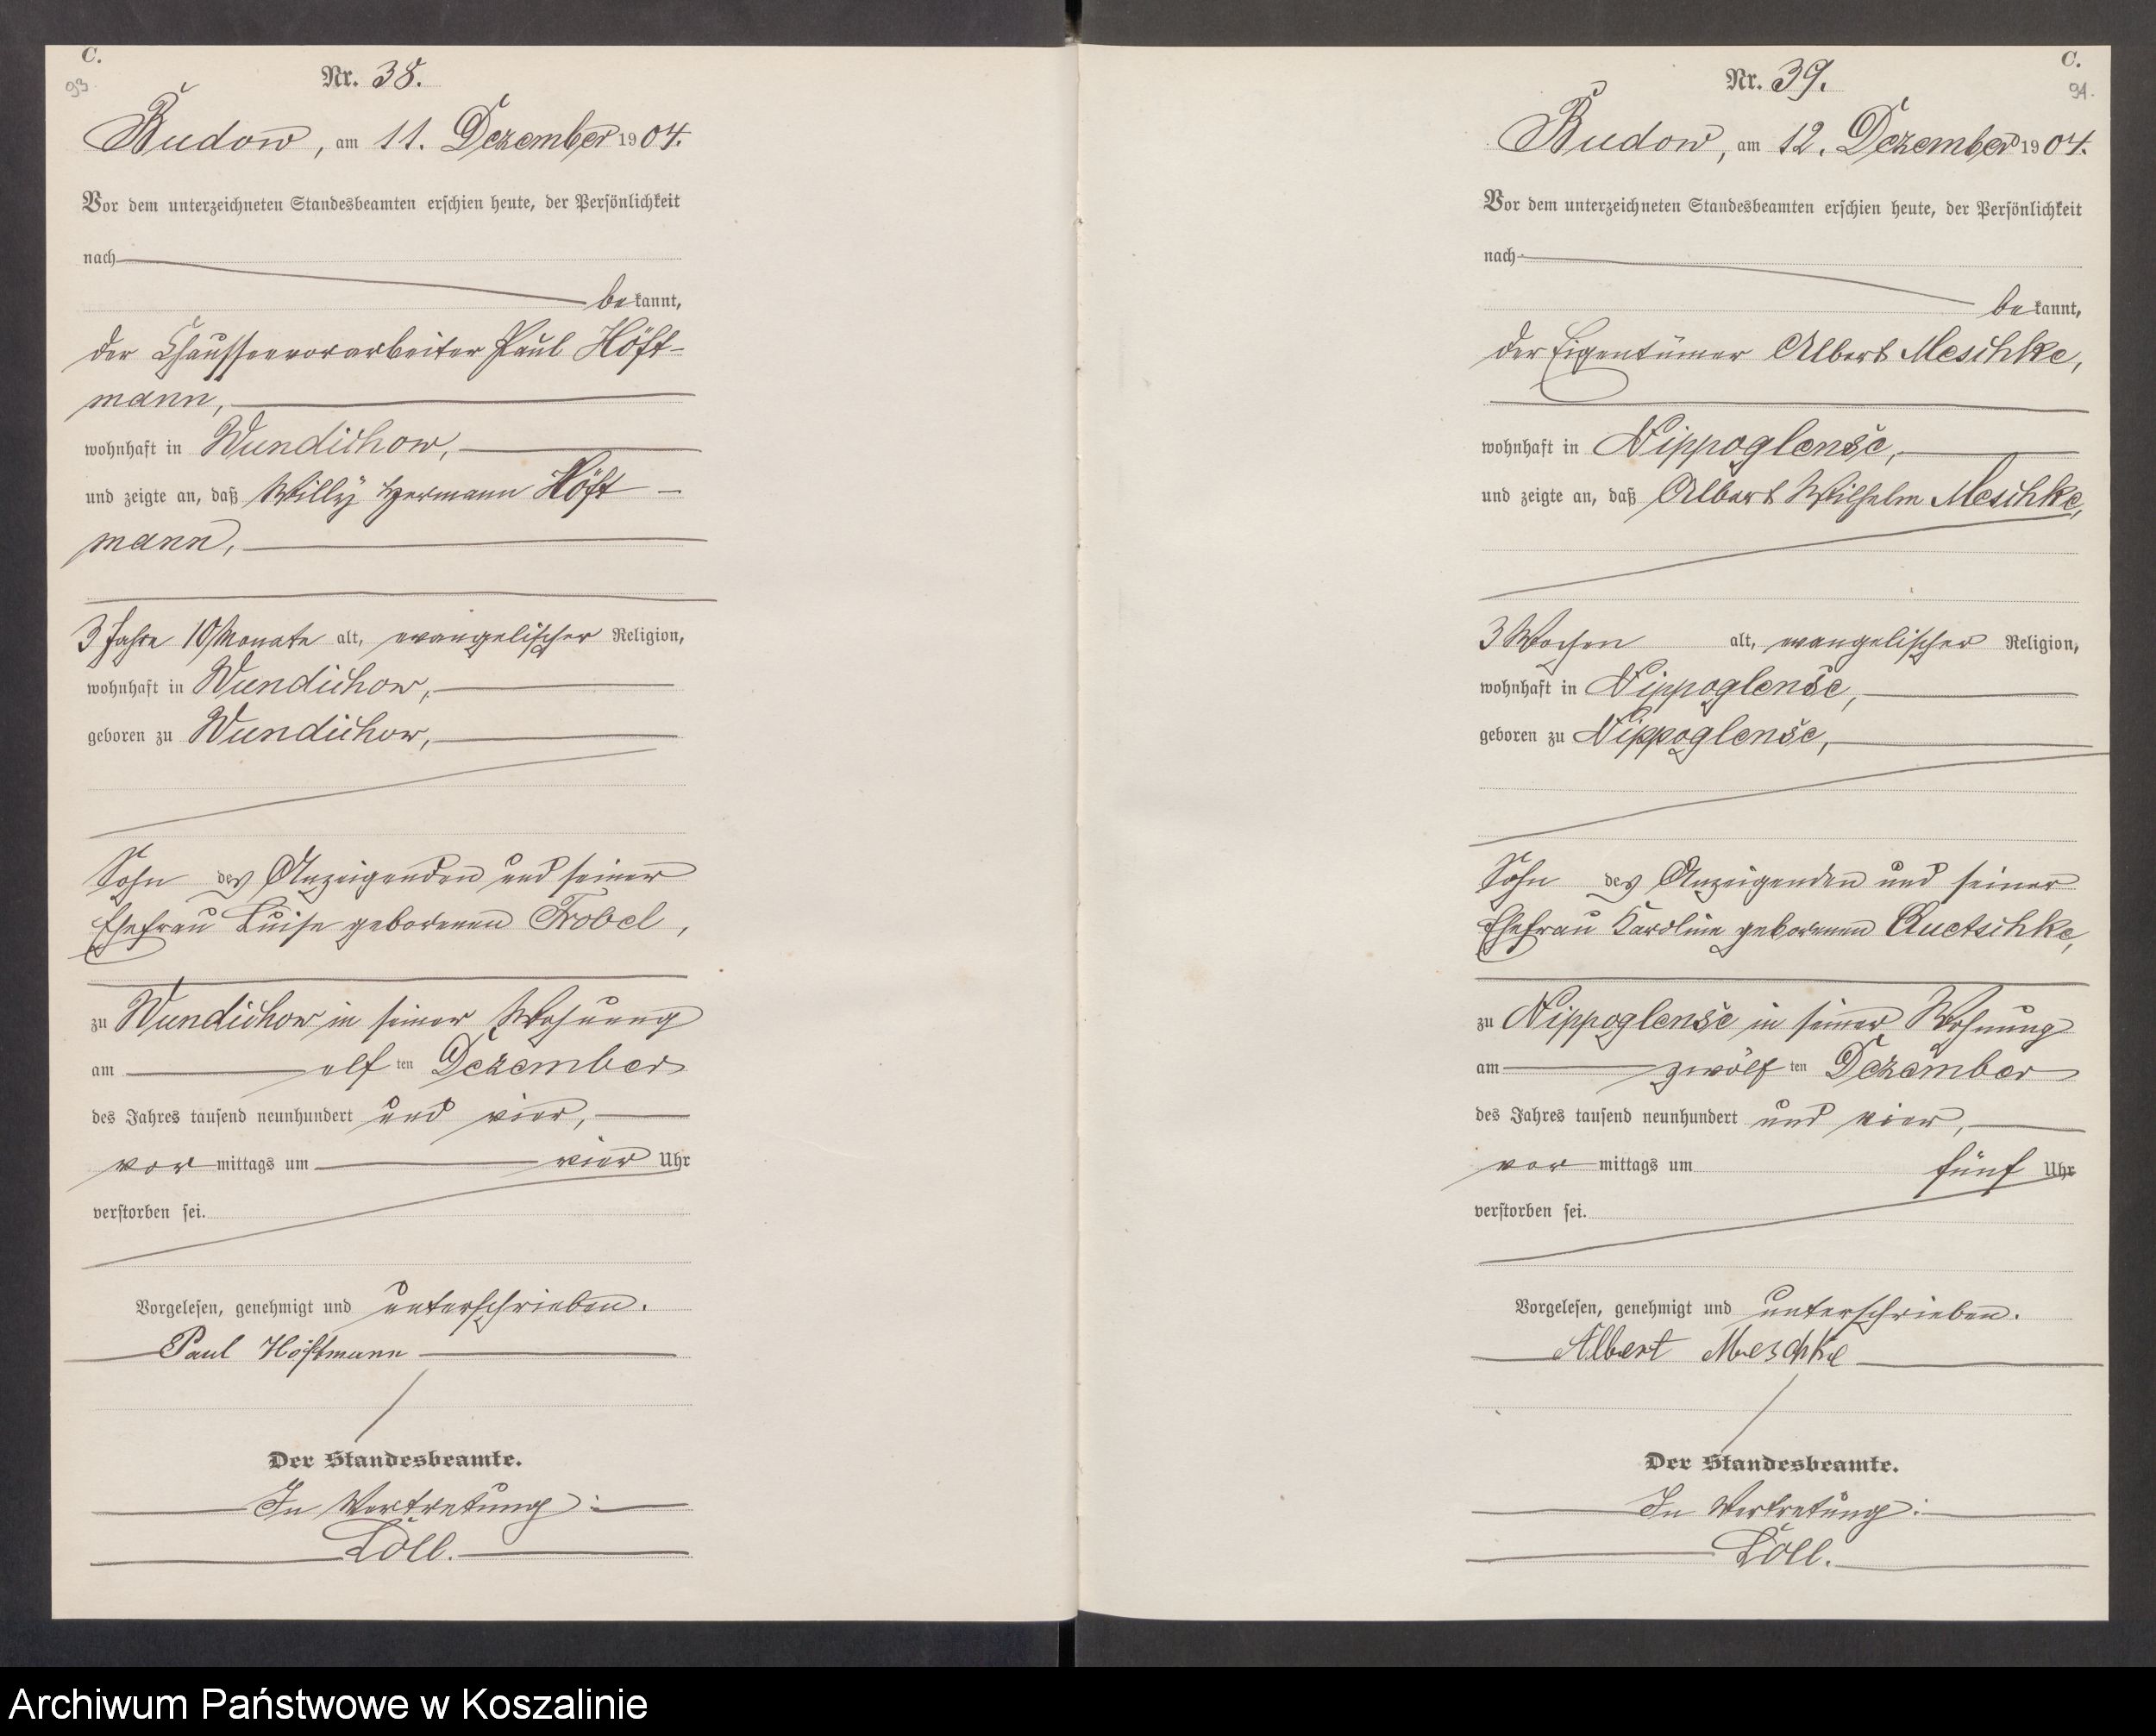 C.
93.
Nr. 38.
Budow, am 11. Dezember 1904.
Vor dem unterzeichneten Standesbeamten erschien heute, der Persönlichkeit
nach
bekannt,
der Chausseevorarbeiter Paul Höft-
mann,
wohnhaft in Wundichow,
und zeigte an, daß Willy Hermann Höft-
mann,
3 Jahre 10 Monate alt, evangelischer Religion,
wohnhaft in Wundichow,
geboren zu Wundichow,
Sohn des Anzeigenden und seiner
Ehefrau Luise geborenen Trobel,
zu Wundichow in seiner Wohnung
am elf ten Dezember
des Jahres tausend neunhundert und vier,
vor mittags um vier Uhr
verstorben sei.
Vorgelesen, genehmigt und unterschrieben.
Paul Höftmann
Der Standesbeamte.
In Vertretung:
Löll.
C.
94.
Nr. 39.
Budow, am 12. Dezember 1904.
Vor dem unterzeichneten Standesbeamten erschien heute, der Persönlichkeit
nach
bekannt,
der Eigentümer Albert Meschke,
wohnhaft in Nippoglense,
und zeigte an, daß Albert Wilhelm Meschke,
3 Wochen alt, evangelischer Religion,
wohnhaft in Nippoglense,
geboren zu Nippoglense,
Sohn des Anzeigenden und seiner
Ehefrau Karoline geborenen Quetschke,
zu Nippoglense in seiner Wohnung
am zwölf ten Dezember
des Jahres tausend neunhundert und vier,
vor mittags um fünf Uhr
verstorben sei.
Vorgelesen, genehmigt und unterschrieben.
Albert Meschke
Der Standesbeamte.
In Vertretung:
Löll.
Archiwum Państwowe w Koszalinie